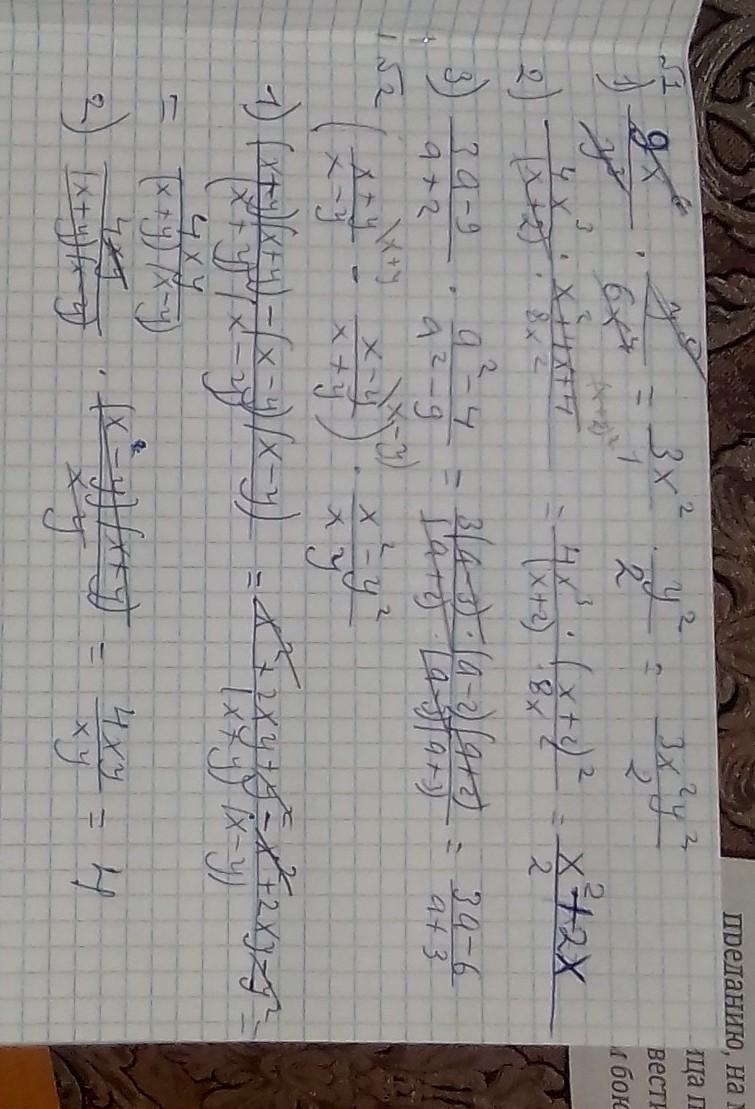 №1
1) 9x⁶/y³ · y⁵/6x⁴ = 3x²/1 · y²/2 = 3x²y²/2
2) 4x³/(x+2) · x²+4x+4/8x² (x+2)² = 4x³/(x+2) · (x+2)²/8x² = x²+2x/2
3) 3a-9/a+2 · a²-4/a²-9 = 3(a-3)·(a-2)(a+2)/(a+2)·(a-3)(a+3) = 3a-6/a+3
№2
(x+y/x-y \x+y - x-y/x+y \x-y) · x²-y²/xy
1) (x+y)(x+y)-(x-y)(x-y)/(x+y)(x-y) = x²+2xy+y²-x²+2xy-y²/(x+y)(x-y) =
= 4xy/(x+y)(x-y)
2) 4xy/(x+y)(x-y) · (x-y)(x+y)/xy = 4xy/xy = 4
преданию, на
ица п
вести
бок